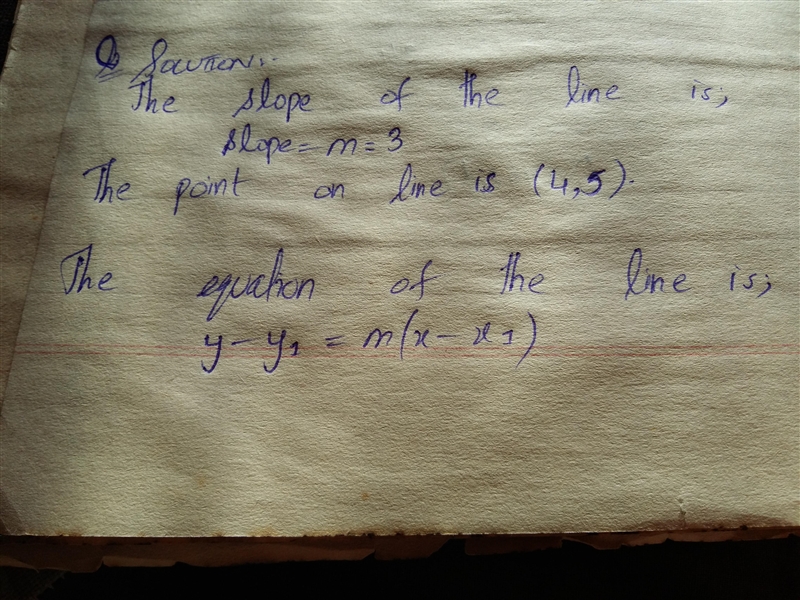 Q Solution:-
The slope of the line is;
slope = m = 3
The point on line is (4,5).
The equation of the line is;
y - y₁ = m(x - x₁)